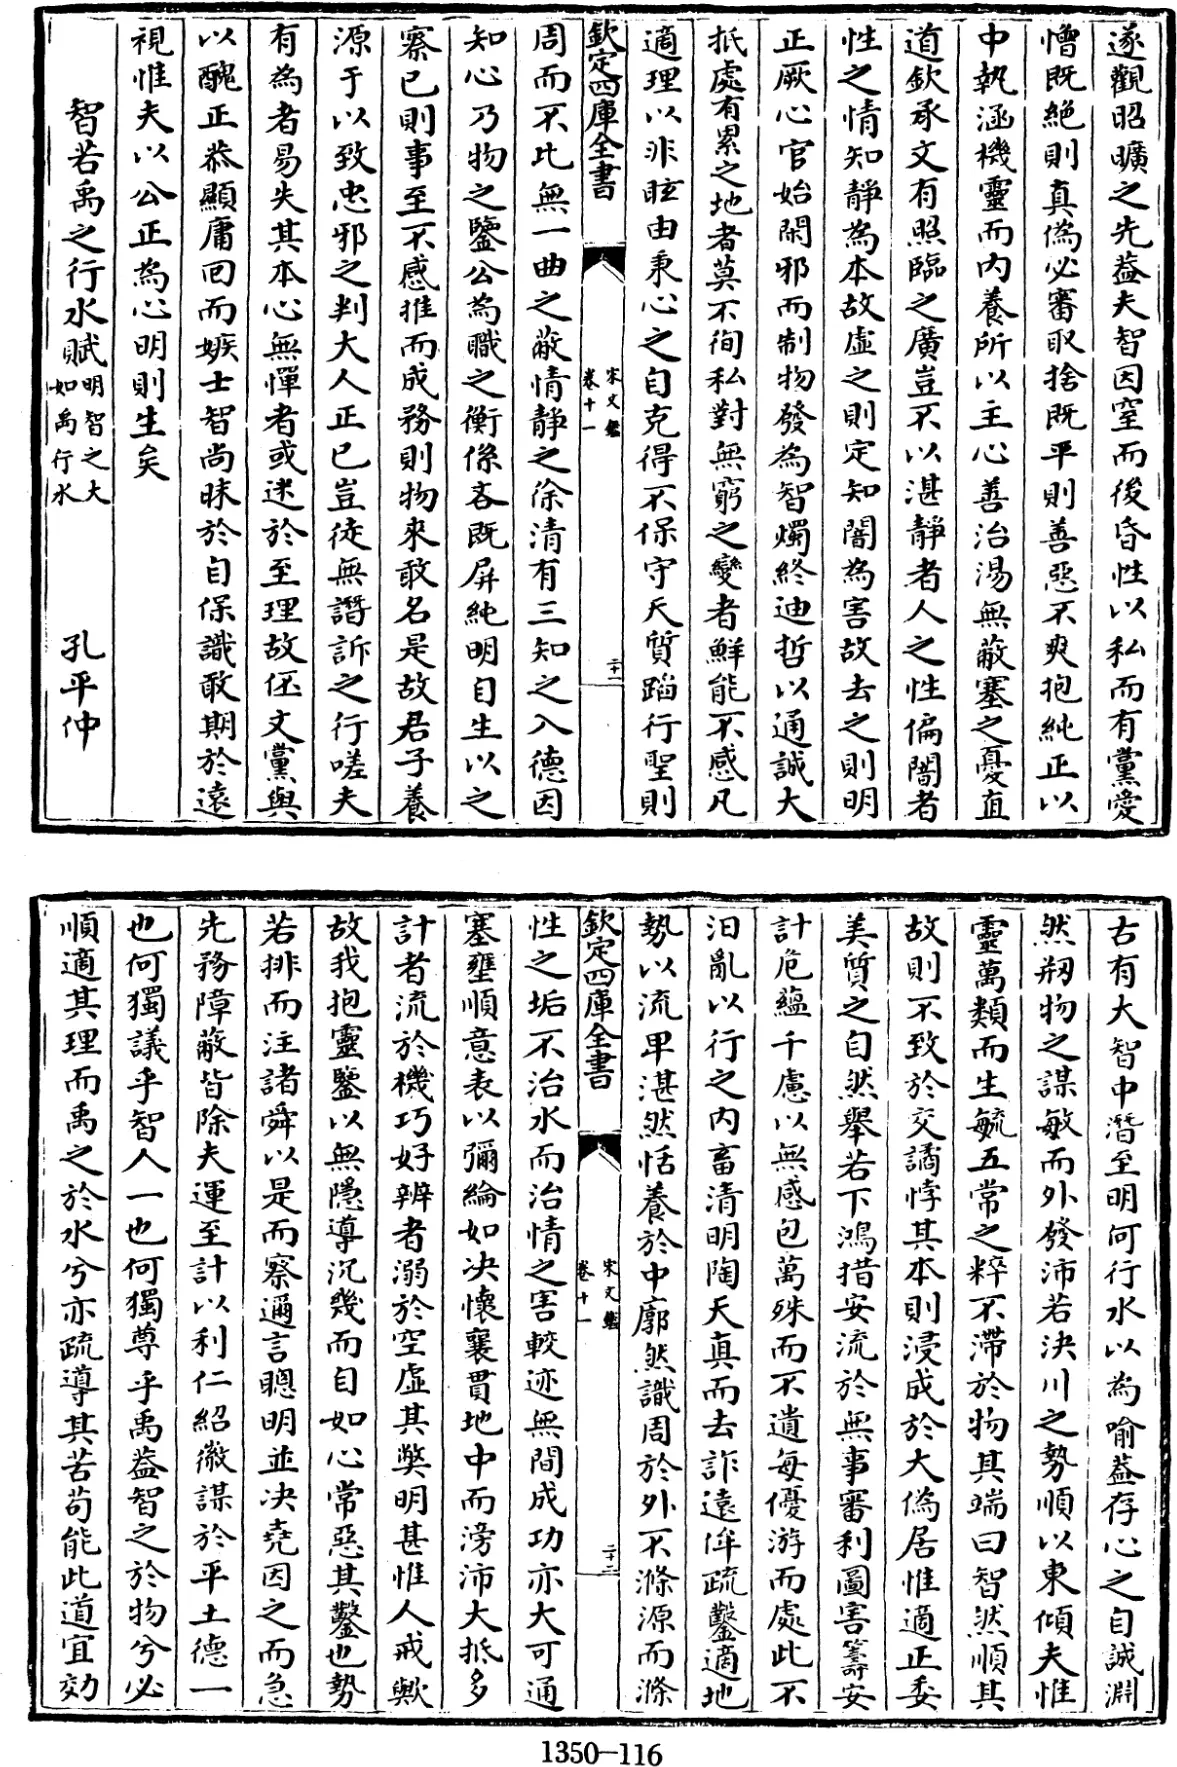 遂觀昭曠之先葢夫智因窒而後昏性以私而有黨愛
憎既絶則真偽必審取捨既平則善惡不爽抱純正以
中執涵機靈而内養所以主心善治湯無蔽塞之憂直
道欽承文有照臨之廣豈不以湛靜者人之性偏闇者
性之情知靜為本故虛之則定知闇為害故去之則明
正厥心官始閑邪而制物發為智燭終迪哲以通誠大
抵處有累之地者莫不徇私對無窮之變者鮮能不感凡
適理以非眩由秉心之自克得不保守天質蹈行聖則
欽定四庫全書
宋文鑑
卷十一
二十一
周而不比無一曲之蔽情靜之徐清有三知之入德因
知心乃物之鑒公為職之衡係吝既屏純明自生以之
察已則事至不惑推而成務則物來敢名是故君子養
源于以致忠邪之判大人正已豈徒無譖訴之行嗟夫
有為者易失其本心無憚者或迷於至理故伾文黨與
以醜正恭顯庸囘而嫉士智尚昧於自保識敢期於遠
視惟夫以公正為心明則生矣
智若禹之行水賦明智之大如禹行水 孔平仲
古有大智中潛至明何行水以為喻葢存心之自誠淵
然剏物之謀敏而外發沛若決川之勢順以東傾夫惟
靈萬類而生毓五常之粹不滯於物其端曰智然順其
故則不致於交譎悖其本則浸成於大偽居惟適正委
美質之自然舉若下鴻措安流於無事審利圖害籌安
計危蘊千慮以無感包萬殊而不遺每優游而處此不
汩亂以行之内畜清明陶天真而去詐遠侔疏鑿適地
勢以流卑湛然恬養於中廓然識周於外不滌源而滌
欽定四庫全書
宋文鑑
卷十一
二十二
性之垢不治水而治情之害較迹無間成功亦大可通
塞壅順意表以彌綸如决懷襄貫地中而滂沛大抵多
計者流於機巧好辨者溺於空虛其獘明甚惟人戒歟
故我抱靈鑒以無隱導沉幾而自如心常惡其鑿也勢
若排而注諸舜以是而察邇言聰明並决堯因之而急
先務障蔽皆除夫運至計以利仁紹徽謀於平土德一
也何獨議乎智人一也何獨尊乎禹葢智之於物兮必
順適其理而禹之於水兮亦疏導其苦苟能此道宜効
1350—116